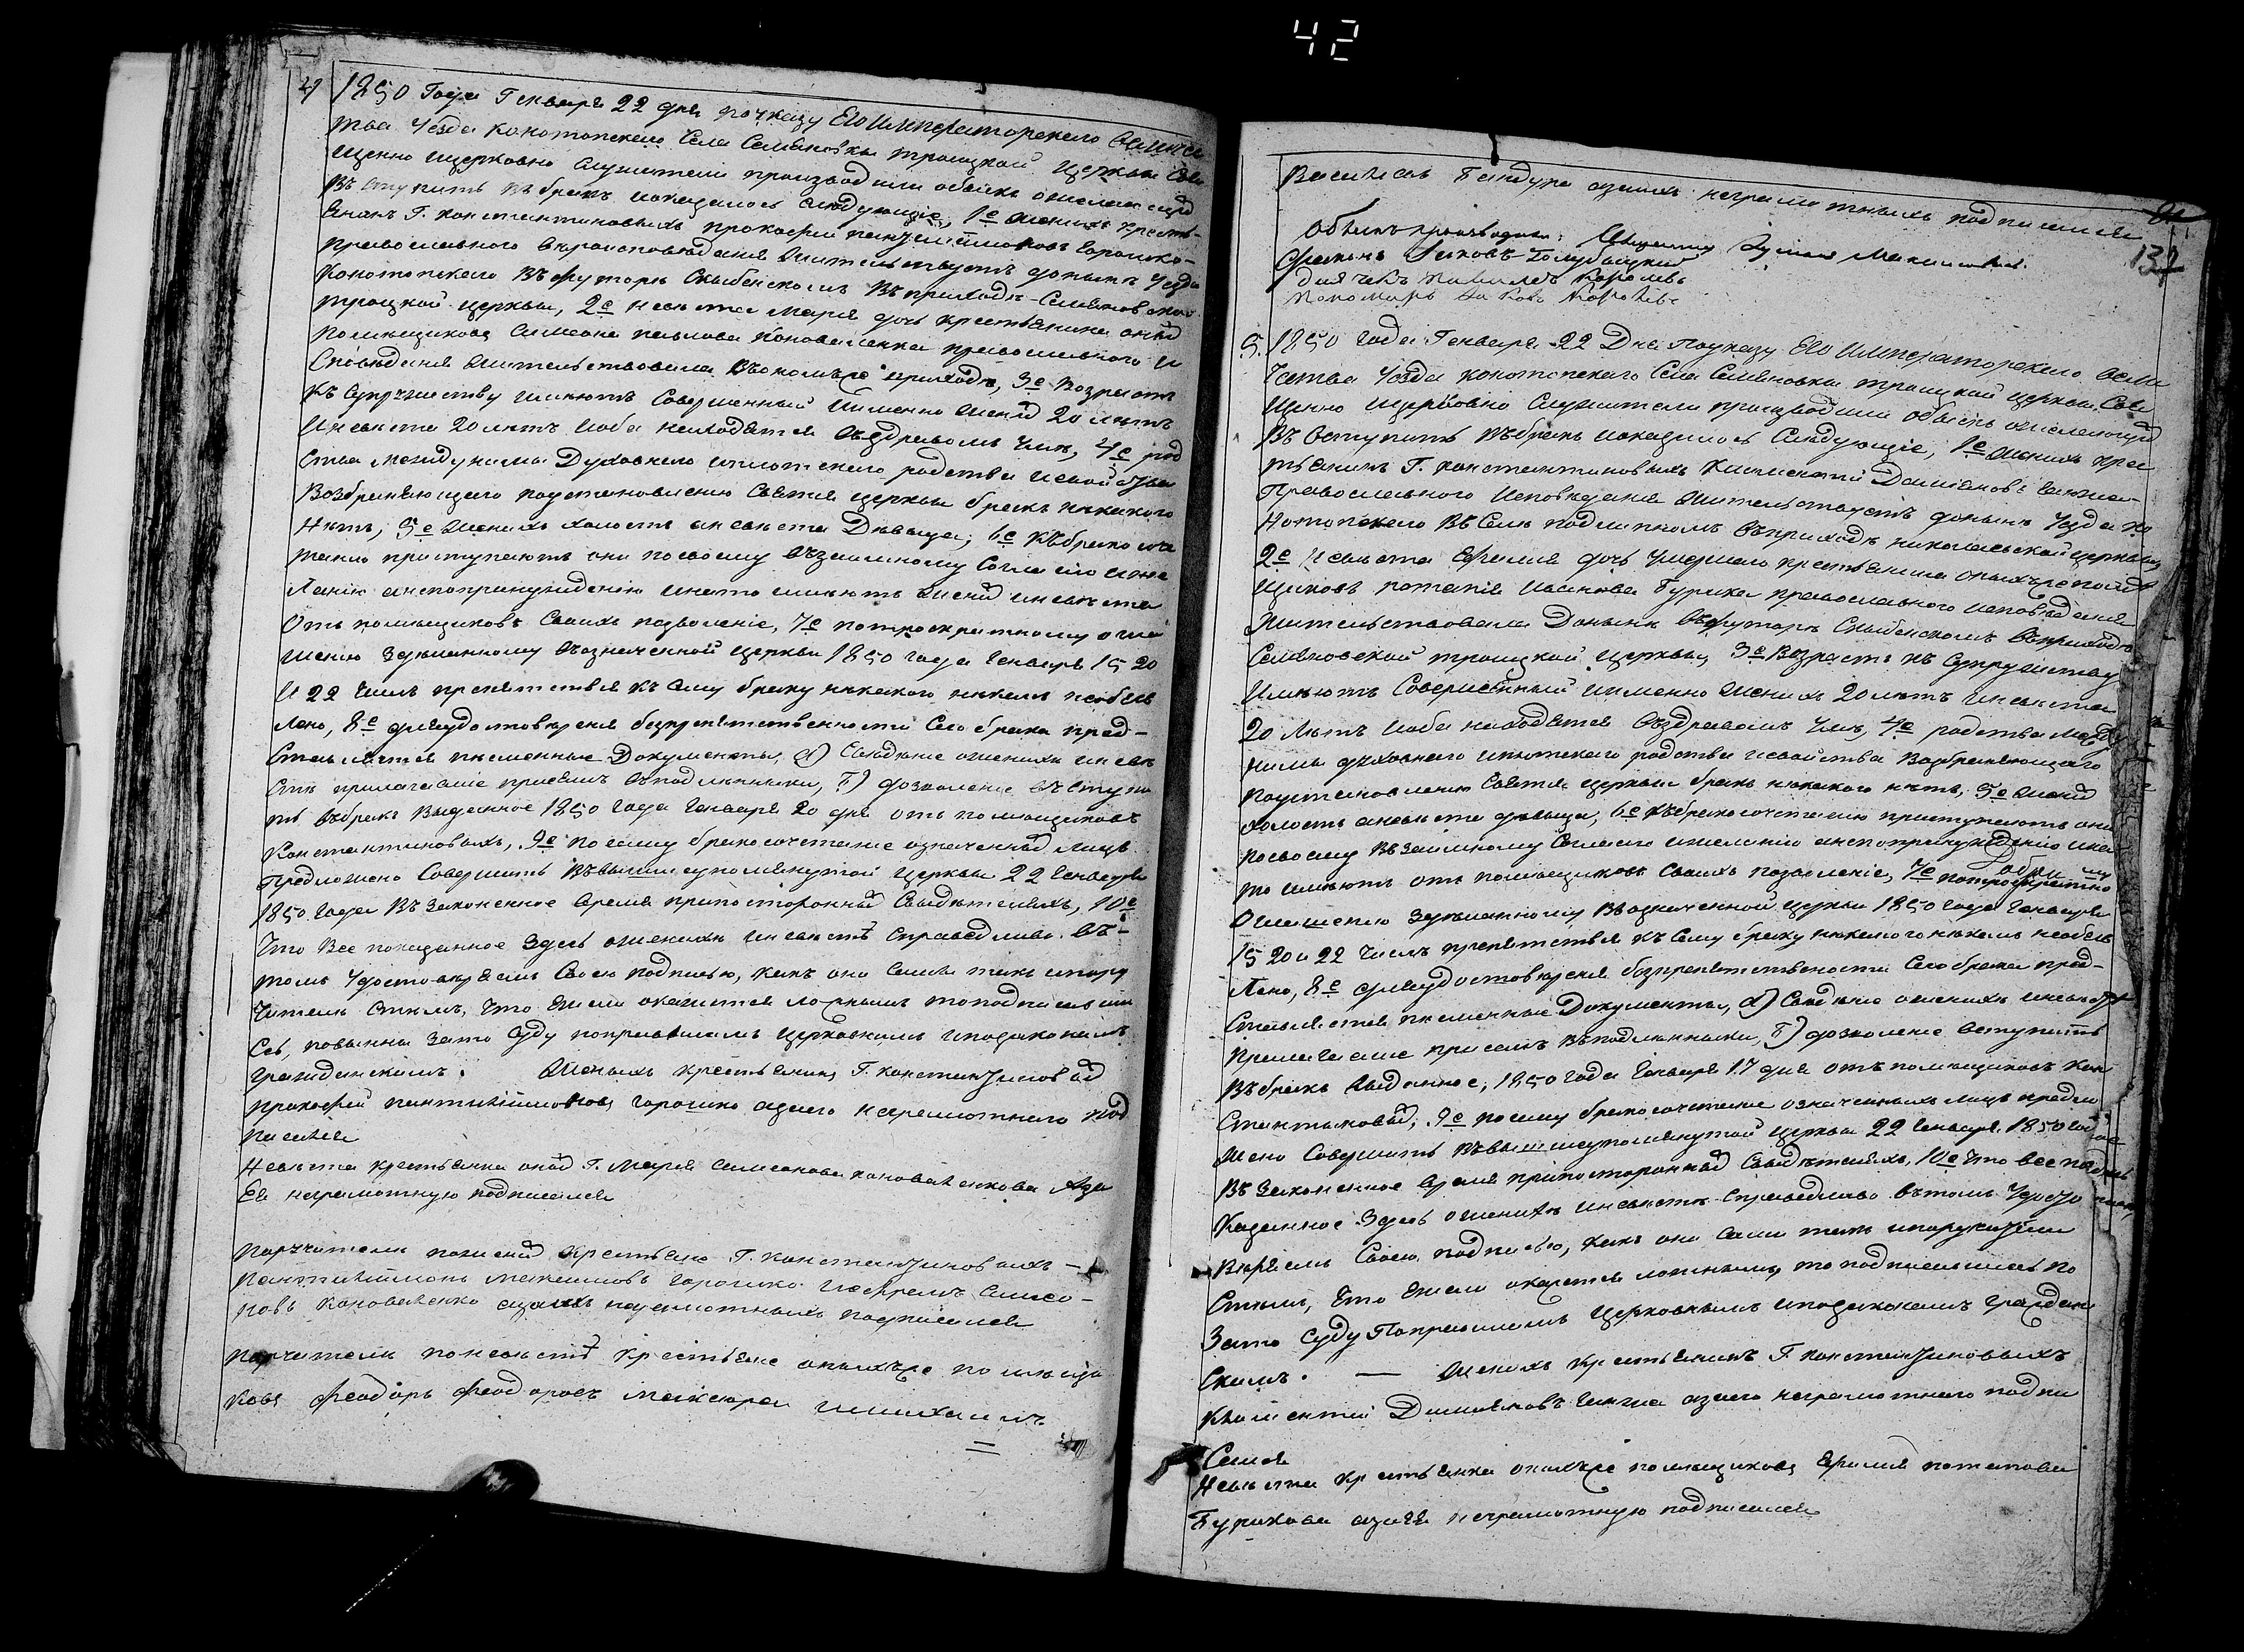 42
4
1850 Года Генваря 22 дня по указу Его Императорского Величе
ства Уезда Конотопского Села Семяновки Троицкой церкви Свя
щенно ицерковно Служители производили обыскъ ожелающихъ
Въступить въбракъ иоказалось следующее, 1е Женихъ кресть-
янинъ Г. Константиновыхъ Прокофий Пантилиймоновъ Горошко
православного вероисповедания жительствуетъ доныне Уезда
Конотопского Въхуторе Скыбенскомъ Въприходе Семяновской
троицкой церкви, 2е Невеста Мария дочь крестьянина оныхъ
помещиковъ Симеона Коноваленка православного и
споведания жительствовала Въономъже приходе, 3е Возрастъ
Къ Супружеству имеютъ Совершенный Именно Жених 20 летъ
Иневеста 20 летъ иоба находятся въздравомъ уме, 4е род
ства между ними Духовного иплотского родства исвойства
Возбраняющего поустановлению Святыя церкви бракъ никакого
Нетъ, 5е Женихъ холостъ аневеста Девица, 6е Къбракосоче
танию приступаютъ они посвоему взаимному Согласию ижела
ланию анепопринуждению инато имеютъ Жених иневеста
Отъ помещиковъ Своихъ позволение, 7е потроекратному огла
шению зделанному въозначенной церкви 1850 года Генваря 15 20
И 22 Числъ препятствия къ Сему браку никакого никемъ необъяв
лено, 8е дляудостоверения безпрепятственности Сего брака пред-
ставляются писменные Документы, А) Сведение ожених иневе
сте прилагаемые присемъ въподлиннике, Б) дозволение въступи
ть въбракъ Выданное 1850 Года Генваря 20 дня отъ помещиковъ
Константиновыхъ, 9е посему бракосочетание означенныхъ лицъ
Предложено Совершить Въвышеупомянутой церкви 22 Генваря
1850 Года Възаконенное Время припосторонныхъ Свидетеляхъ, 10е
Что Все показанное Здесь ожених иневесте справедливо въ-
томъ Удостоверяемъ Своею подписью, какъ они Сами такъ ипору
чители Стемъ, Что Ежели окажется ложнымъ топодписавшие
ся, повынны Зато Суду поправиламъ церковнымъ ипозаконамъ
гражданскимъ. Женихъ крестьянинъ Г. Константиновыхъ
Прокофий Пантилиймоновъ Горошко азаего неграмотного под
писался
Невеста крестьянка оныхъ Г. Мария Симеонова Коноваленкова Аза
Ея неграмотную подписался
Поручители пожених крестьяне Г. Константиновыхъ
Пантилиймонъ Горошко Симео-
новъ Коноваленко азаихъ неграмотныхъ подписался
Поручители поневесте крестьяне онихъже помещи
ковъ Феодоръ Феодоровъ
Василий Бандура азаихъ неграмотныхъ подписался
137
Обыскъ производили: Священникъ
Яковъ Голубицкий
диячекъ Павелъ Королевъ
Пономарь Яковъ Королевъ
5. 1850 Года Генваря 22 Дня Поуказу Его Императорского Вели
Чества Уезда Конотопского Села Семяновки троицкой церкви Свя
Щенно ицерковно Служители производили обыскъ ожелающихъ
Въступить въбракъ иоказалось Следующие, 1е Женихъ крес
тьянинъ Г. Константиновыхъ Климентий Дамияновъ
Православного Исповедания жительствуетъ доныне Уезда Ко
нотопского Въселе Подлипномъ въприходе Николаевской церкви,
2е Невеста Ефимия дочь Умершего крестьянина онихъже поме
щиковъ Потапия Иванова Бурика православного исповедания
Жительствовала Доныне въхуторе Скыбенскомъ въприходе
Семяновской троицкой церкви, 3е Возрастъ къ Супружеству
Имеютъ Совершенный именно Женихъ 20 летъ иневеста
20 Летъ иоба находятся въздравомъ уме, 4е родства между
ними духовного иплотского родства исвойства Возбраняющего
Поустановлению Святыя церкви бракъ никакого нетъ, 5е Жених
холостъ аневеста девица, 6е Къбракосочетанию приступаютъ они
посвоему Взаимному Согласию ижеланию анепопринуждению ина
то имеютъ отъ помещиковъ Своихъ позволение, 7е потроекратно
Оглашению зделанному Въозначенной церкви 1850 Года Генваря
15 20 и 22 Числъ препятствия къ Сему браку никакого никемъ необъяв
лено, 8е дляудостоверения безпрепятственности Сего брака пред-
ставляются писменные Документы, А) Сведение оженихе иневесте
Прилагаемые присемъ Въподлиннике, Б) дозволение вступить
Въбракъ выданное, 1850 года Генваря 17 дня отъ помещиковъ Кон
стантиновыхъ, 9е посему бракосочетание означенныхъ лицъ предло
жено Совершить Въвышеупомянутой церкви 22 Генваря 1850 года
Възаконенное время припосторонныхъ Свидетеляхъ, 10е Что все по
казанное Здесь оженихе иневесте справедливо вътомъ Удосто
веряемъ Своею подписью, какъ они Сами такъ ипоручители
Стемъ, Что Ежели окажется ложнымъ, то подписавшиеся по
Зато Суду Поправиламъ церковнымъ ипозаконамъ граждан
скимъ. — Женихъ крестьянинъ Г. Константиновыхъ
Климентий Дамияновъ азаего неграмотного подпи
сался
Невеста крестьянка онихъже помещиковъ Ефимия Потапова
Бурикова азаея неграмотную подписался